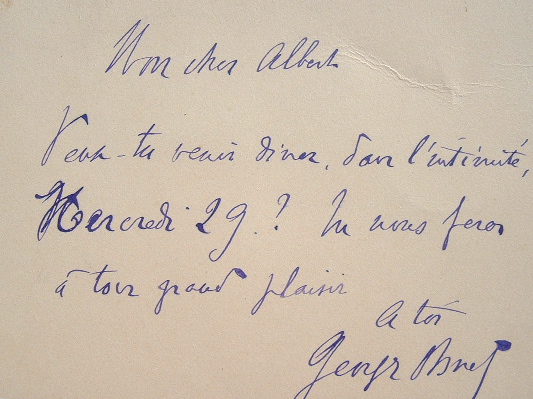 Mon cher Albert
Veux-tu venir diner, dans l'intimité,
Mercredi 29.? Tu nous feras
à tous grand plaisir
A toi
George